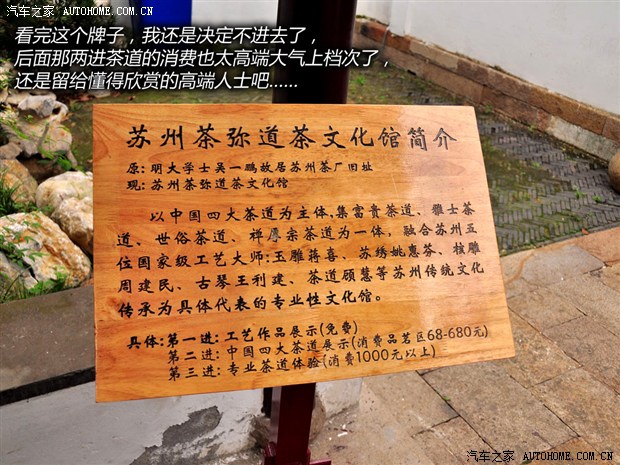 汽车之家 AUTOHOME.COM.CN
汽车之家 AUTOHOME.COM.CN
看完这个牌子，我还是决定不进去了，
后面那两进茶道的消费也太高端大气上档次了，
还是留给懂得欣赏的高端人士吧......
苏州茶弥道茶文化馆简介
原：明大学士吴一鹏故居苏州茶厂旧址
现：苏州茶弥道茶文化馆
以中国四大茶道为主体,集富贵茶道、雅士茶
道、世俗茶道、禅厚宗茶道为一体，融合苏州五
位国家级工艺大师:玉雕蒋喜、苏绣姚惠芬、核雕
周建民、古琴王利建、茶道顾慧等苏州传统文化
传承为具体代表的专业性文化馆。
具体:第一进:工艺作品展示(免费)
第二进:中国四大茶道展示(消费品茗区68-680元)
第三进:专业茶道体验(消费1000元以上)
汽车之家 AUTOHOME.COM.CN
汽车之家 AUTOHOME.COM.CN